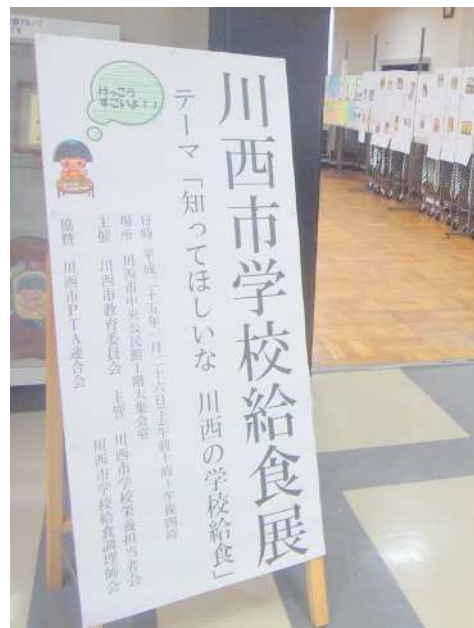 川西市学校給食展
テーマ「知ってほしいな 川西の学校給食」
日時 平成二十五年一月二十六日(土)午前十時~午後四時
場所 川西市中央公民館1階大集会室
主催 川西市教育委員会 主管 川西市学校栄養担当者会
川西市学校給食調理師会
協賛 川西市PTA連合会
けっこう
すごいよ!!